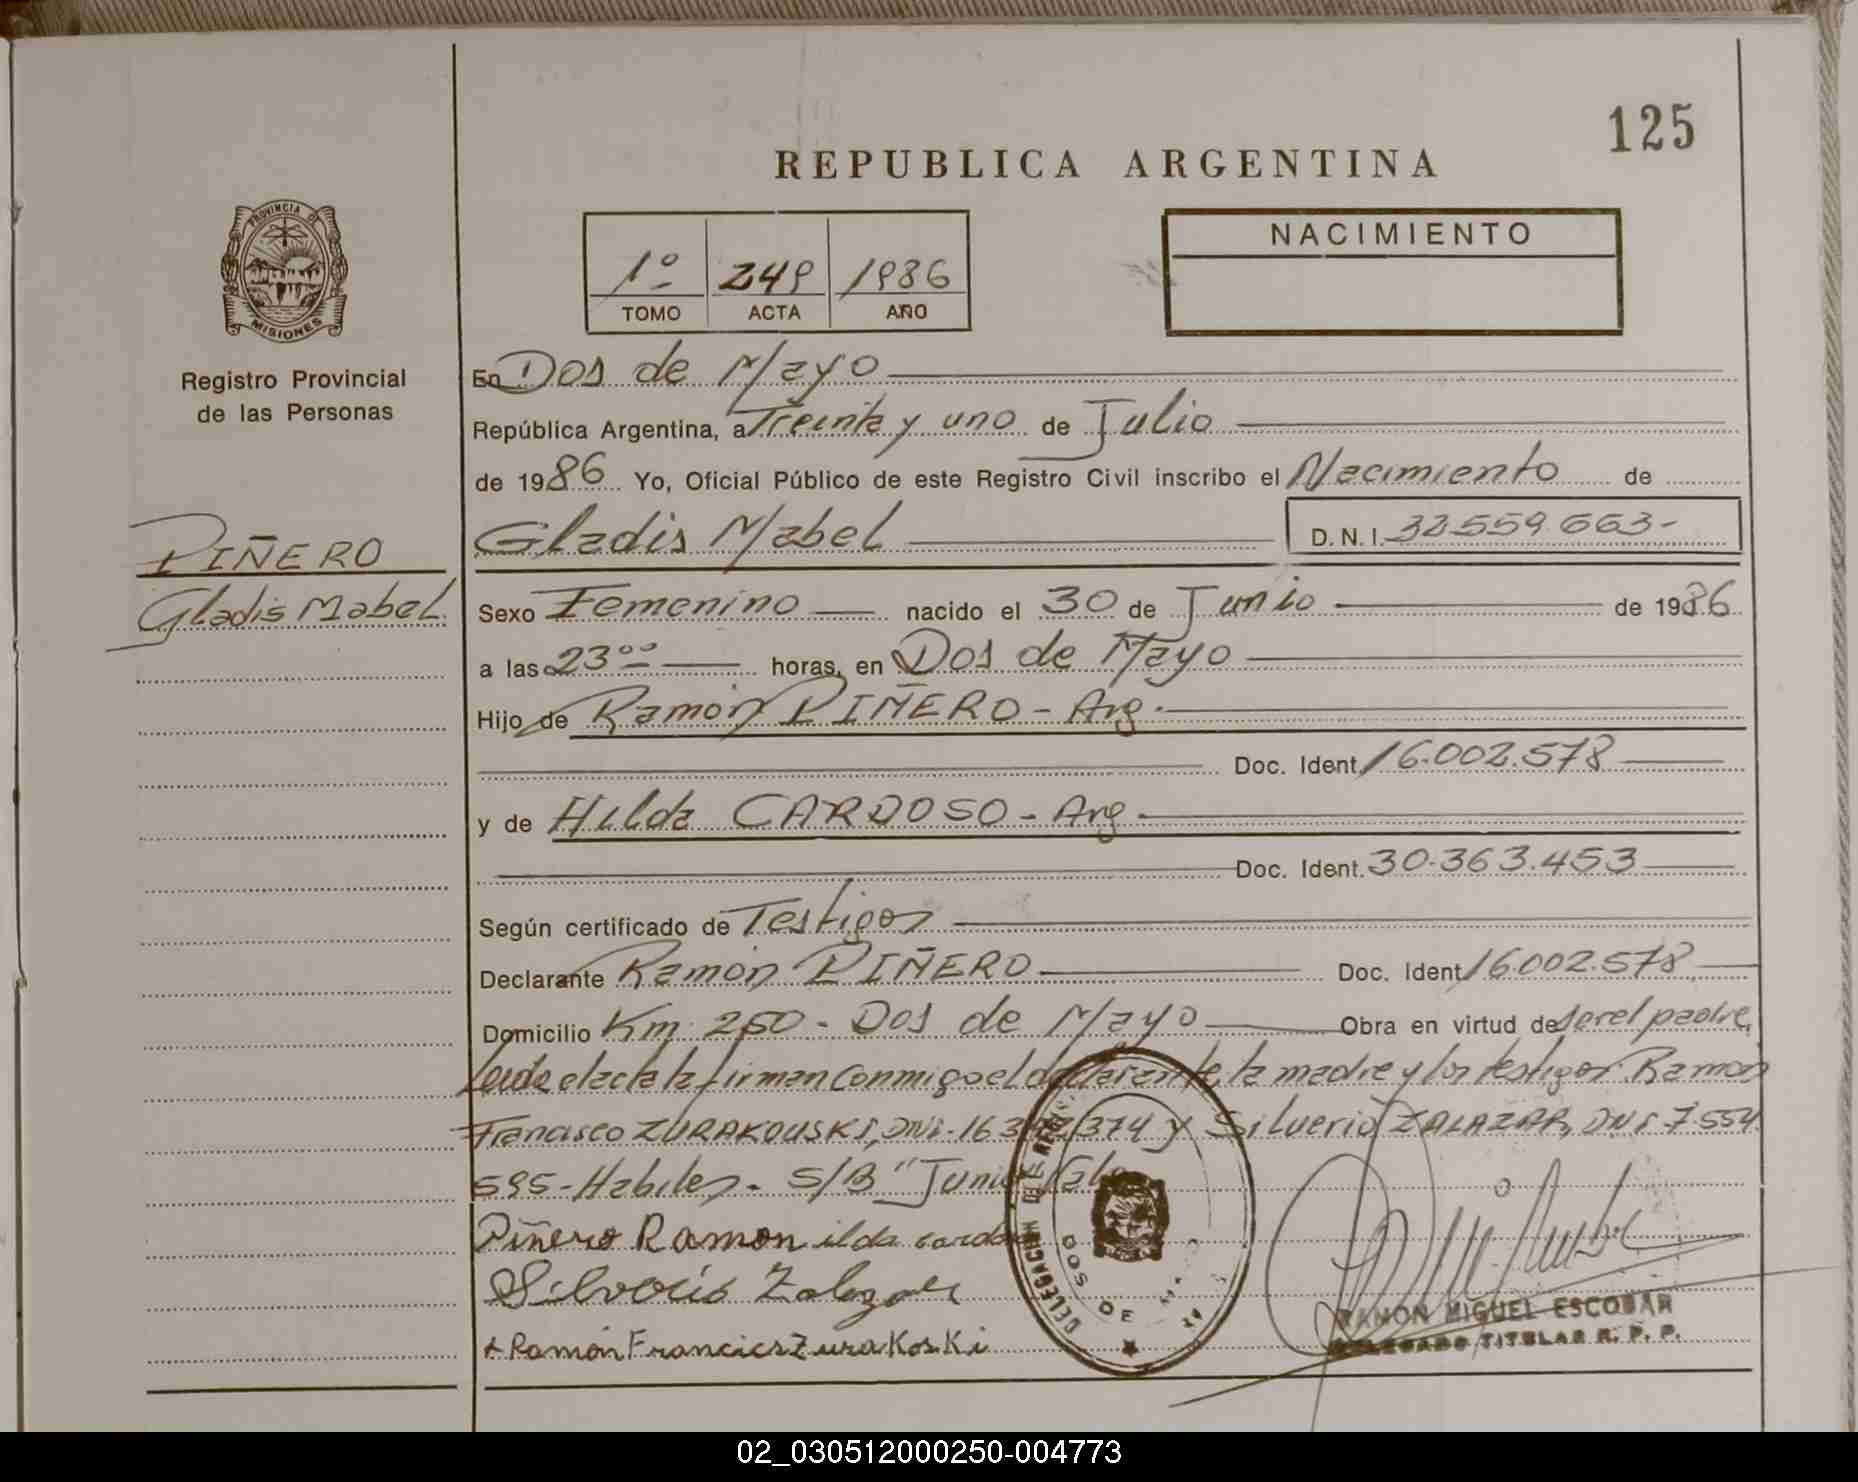 125
REPUBLICA ARGENTINA
PROVINCIA DE
MISIONES
Registro Provincial
de las Personas
1º 249 1986
TOMO ACTA AÑO
NACIMIENTO
En Dos de Mayo
República Argentina, a Treinta y uno de Julio
de 1986 Yo, Oficial Público de este Registro Civil inscribo el Nacimiento de
Gladis Mabel D.N.I. 32.559.663-
PIÑERO
Gladis Mabel
Sexo Femenino nacido el 30 de Junio de 1986
a las 23ºº horas, en Dos de Mayo
Hijo de Ramón PIÑERO - Arg.
Doc. Ident. 16.002.578
y de Hilda CARDOSO - Arg.
Doc. Ident. 30.363.453
Según certificado de Testigos
Declarante Ramón PIÑERO Doc. Ident. 16.002.578
Domicilio Km. 250 - Dos de Mayo Obra en virtud de ser el padre,
Leida el acta la firman conmigo el declarante, la madre y los testigos Ramón
Francisco ZURAKOUSKI, DNI. 16 374 y Silverio ZALAZAR, DNI 7.554.
595 - Habiles. S/B "Junio
Piñero Ramon ilda cardo
Silverio Zalazar
Ramón Francics Zurakoski
DELEGACION DE
DOS DE
RAMON MIGUEL ESCOBAR
DELEGADO TITULAR R. P. P.
02_030512000250-004773